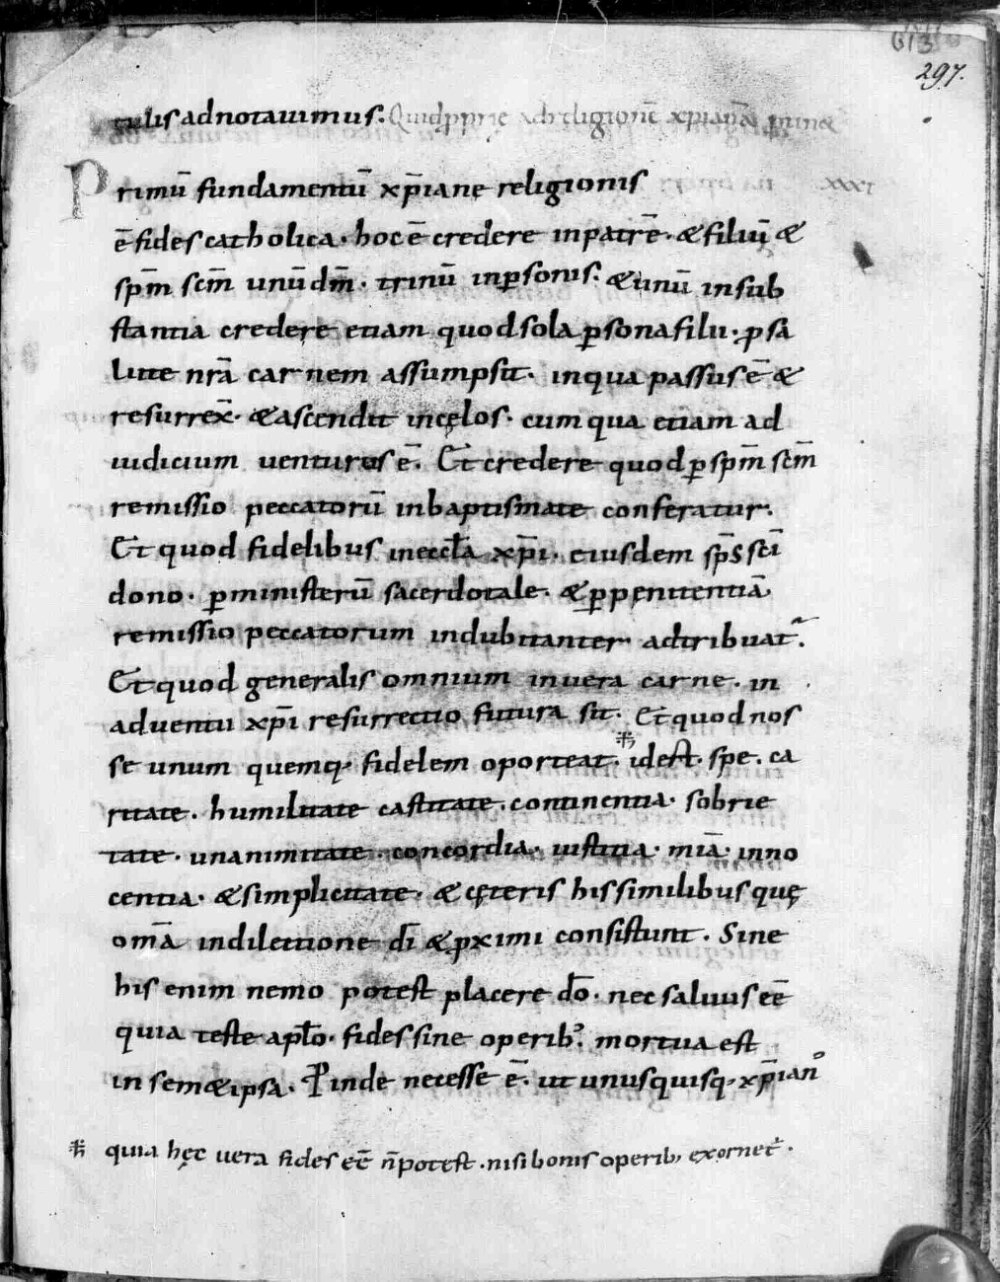 613
297.
tulis adnotauimus. Quid pprie ad religionē xp̄ianā
Primū fundamentū xp̄iane religionis
xxxi
ē fides catholica · hoc ē credere in patrē · & filiū &
sp̄m sc̄m unū dm̄ · trinū in ꝑsonis · & unū in sub
stantia credere etiam quod sola ꝑsona filii · ꝓ sa
lute nr̄a carnem assumpsit · in qua passus ē &
resurrex̄ · & ascendit in cęlos · cum qua etiam ad
iudicium uenturus ē. Et credere quod ꝑ sp̄m sc̄m
remissio peccatorū in baptismate conferatur.
Et quod fidelibus in eccl̄a xp̄i · eiusdem sp̄s sc̄i
dono · ꝑ ministeriū sacerdotale · & ꝑ pęnitentiā
remissio peccatorum indubitanter adtribuat̄.
Et quod generalis omnium in uera carne · in
aduentu xp̄i resurrectio futura sit · Et quod nos
se unum quemq; fidelem oporteat · idest · spe · ca
ritate · humilitate castitate · continentia · sobrie
tate · unanimitate · concordia · iustitia · mīa · inno
centia · & simplicitate · & cęteris his similibus quę
om̄a in dilectione dī & ꝓximi consistunt. Sine
his enim nemo potest placere dō · nec saluus eē
quia teste apl̄o · fides sine operib; mortua est
in semet&ipsa. Proinde necesse ē · ut unusquisq; xp̄ianꝰ
⁜ quia hęc uera fides eē n̄ potest · nisi bonis operib; exornet̄ ·